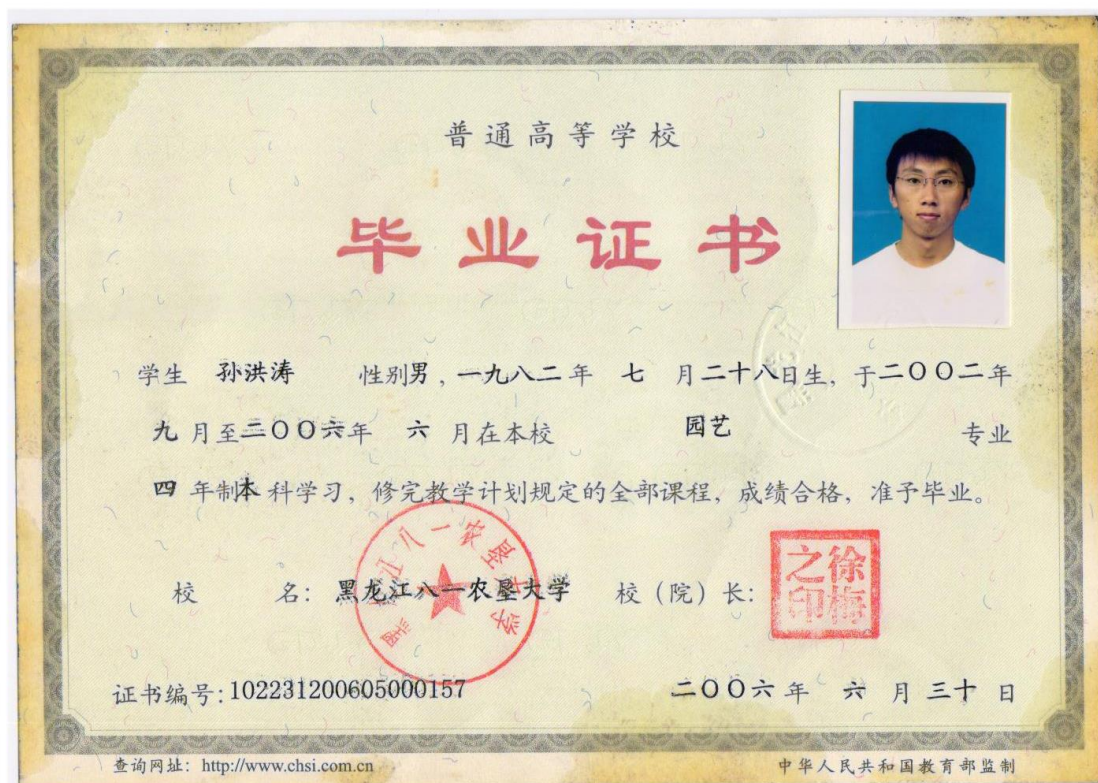 普通高等学校
毕业证书
学生 孙洪涛 性别男，一九八二年 七 月二十八日生，于二〇〇二年
九 月至二〇〇六年 六 月在本校 园艺 专业
四 年制本科学习，修完教学计划规定的全部课程，成绩合格，准予毕业。
校 名：黑龙江八一农垦大学 校（院）长：
黑龙江八一农垦大学
徐梅之印
证书编号：102231200605000157 二〇〇六年 六 月三十日
查询网址：http://www.chsi.com.cn 中华人民共和国教育部监制